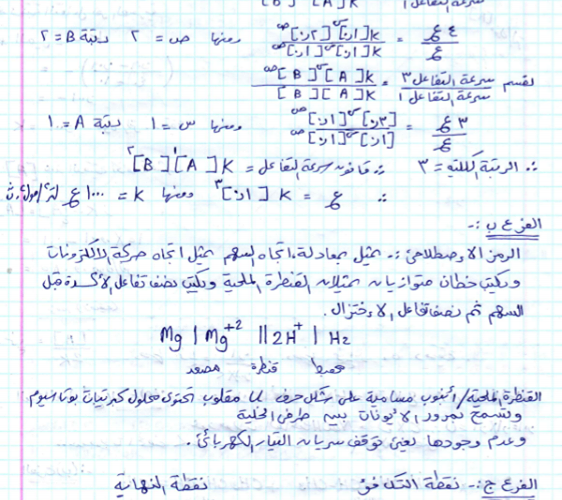 سرعة التفاعل ١ [B] [A]
٤ع / ع = K[٠,١]س[٠,٢]ص / K[٠,١]س[٠,١]ص ومنها ص = ٢ رتبة B = ٢
نقسم سرعة التفاعل ٣ / سرعة التفاعل ١ = K[A]س[B]ص / K[A]س[B]ص
٣ع / ع = [٠,٣]س[٠,١]ص / [٠,١]س[٠,١]ص ومنها س = ١ رتبة A = ١
∴ الرتبة الكلية = ٣ ∴ قانون سرعة التفاعل = K[A]¹[B]²
∴ ع = K[٠,١]³ ومنها K = ١٠٠٠ع لتر²/مول².ث
الفرع ب :-
الرمز الاصطلاحي :- تمثيل بمعادلة، اتجاه السهم يمثل اتجاه حركة الالكترونات
ويكتب خطان متوازيان يمثلان القنطرة الملحية ويكتب نصف تفاعل الأكسدة قبل
السهم ثم نصف تفاعل الاختزال.
Mg | Mg⁺² || 2H⁺ | H₂
مصعد قنطرة مهبط
القنطرة الملحية/ أنبوب مسامية على شكل حرف U مقلوب تحتوي محلول كبريتات بوتاسيوم
وتسمح بمرور الايونات بين طرفي الخلية
وعدم وجودها يعني توقف سريان التيار الكهربائي.
الفرع ج :- نقطة التكافؤ نقطة النهاية